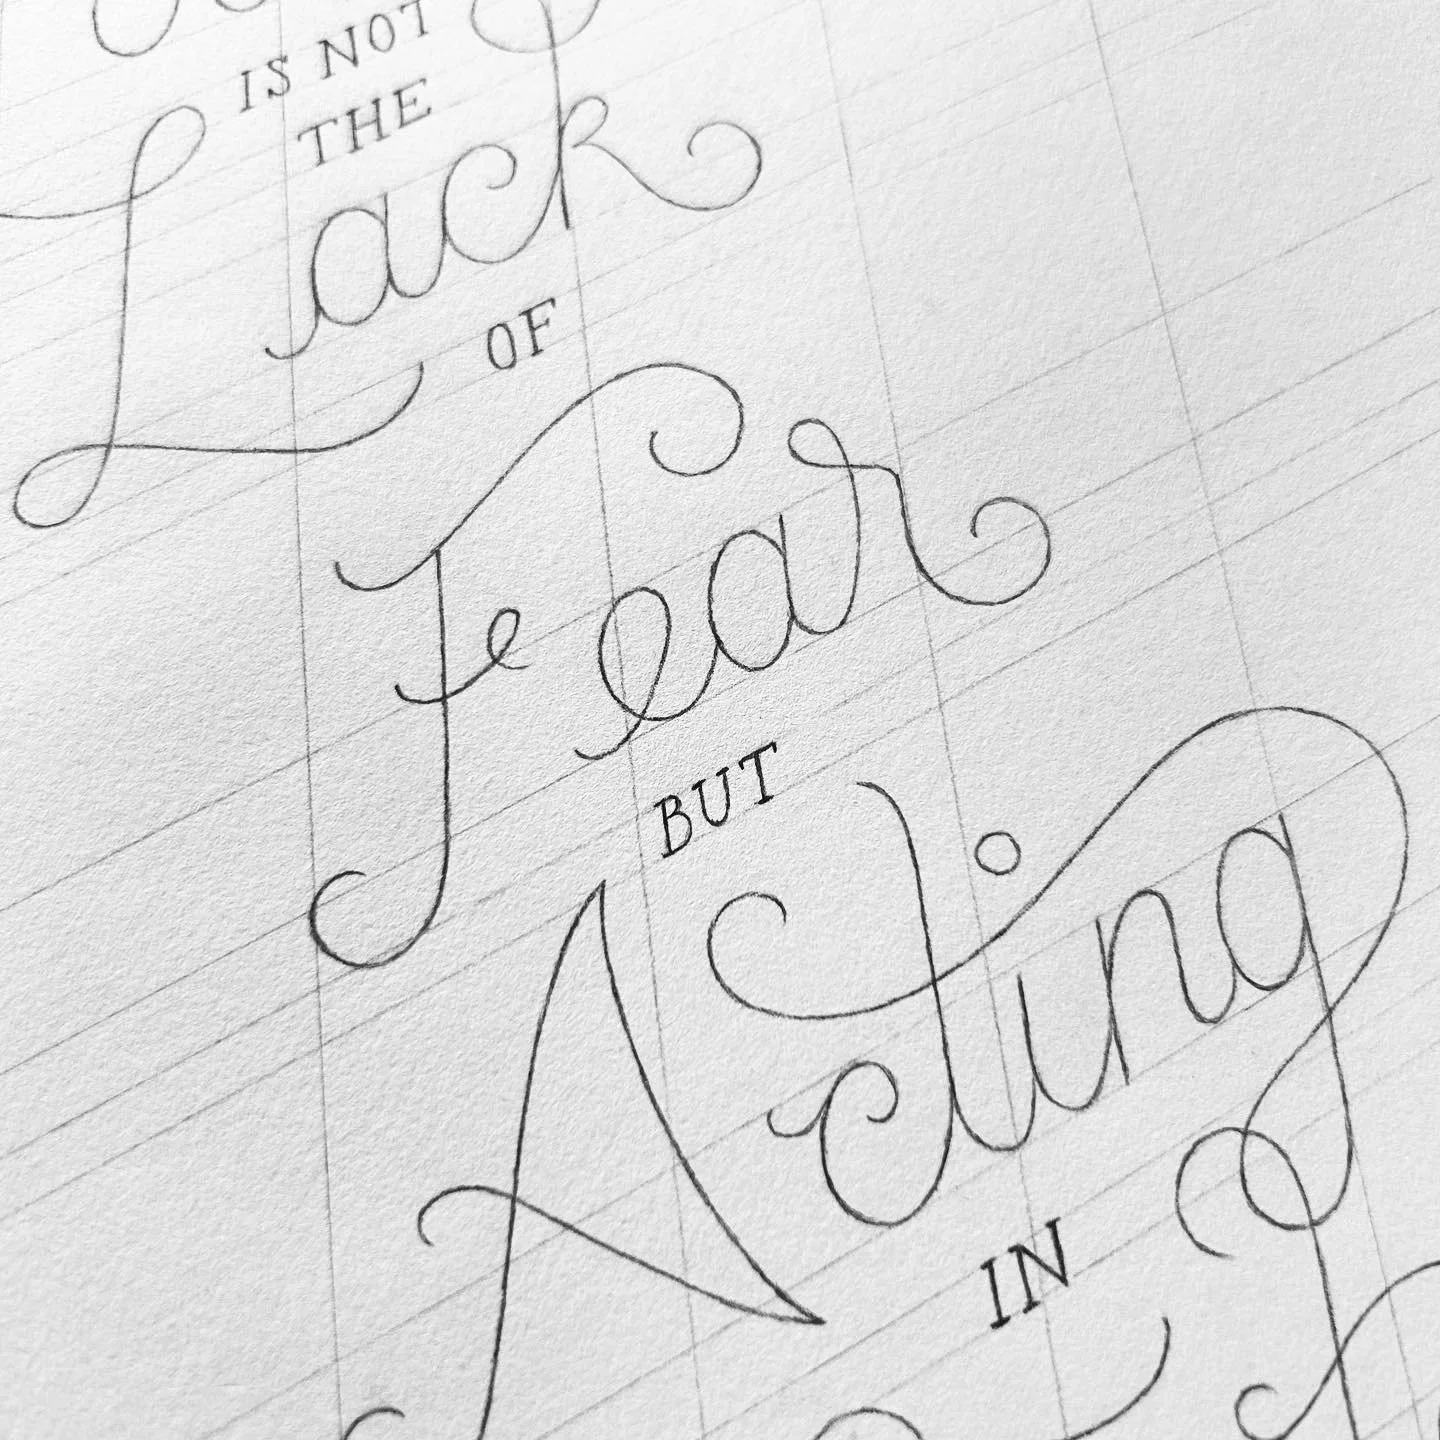 IS NOT
THE
Lack
OF
Fear
BUT
Acting
IN